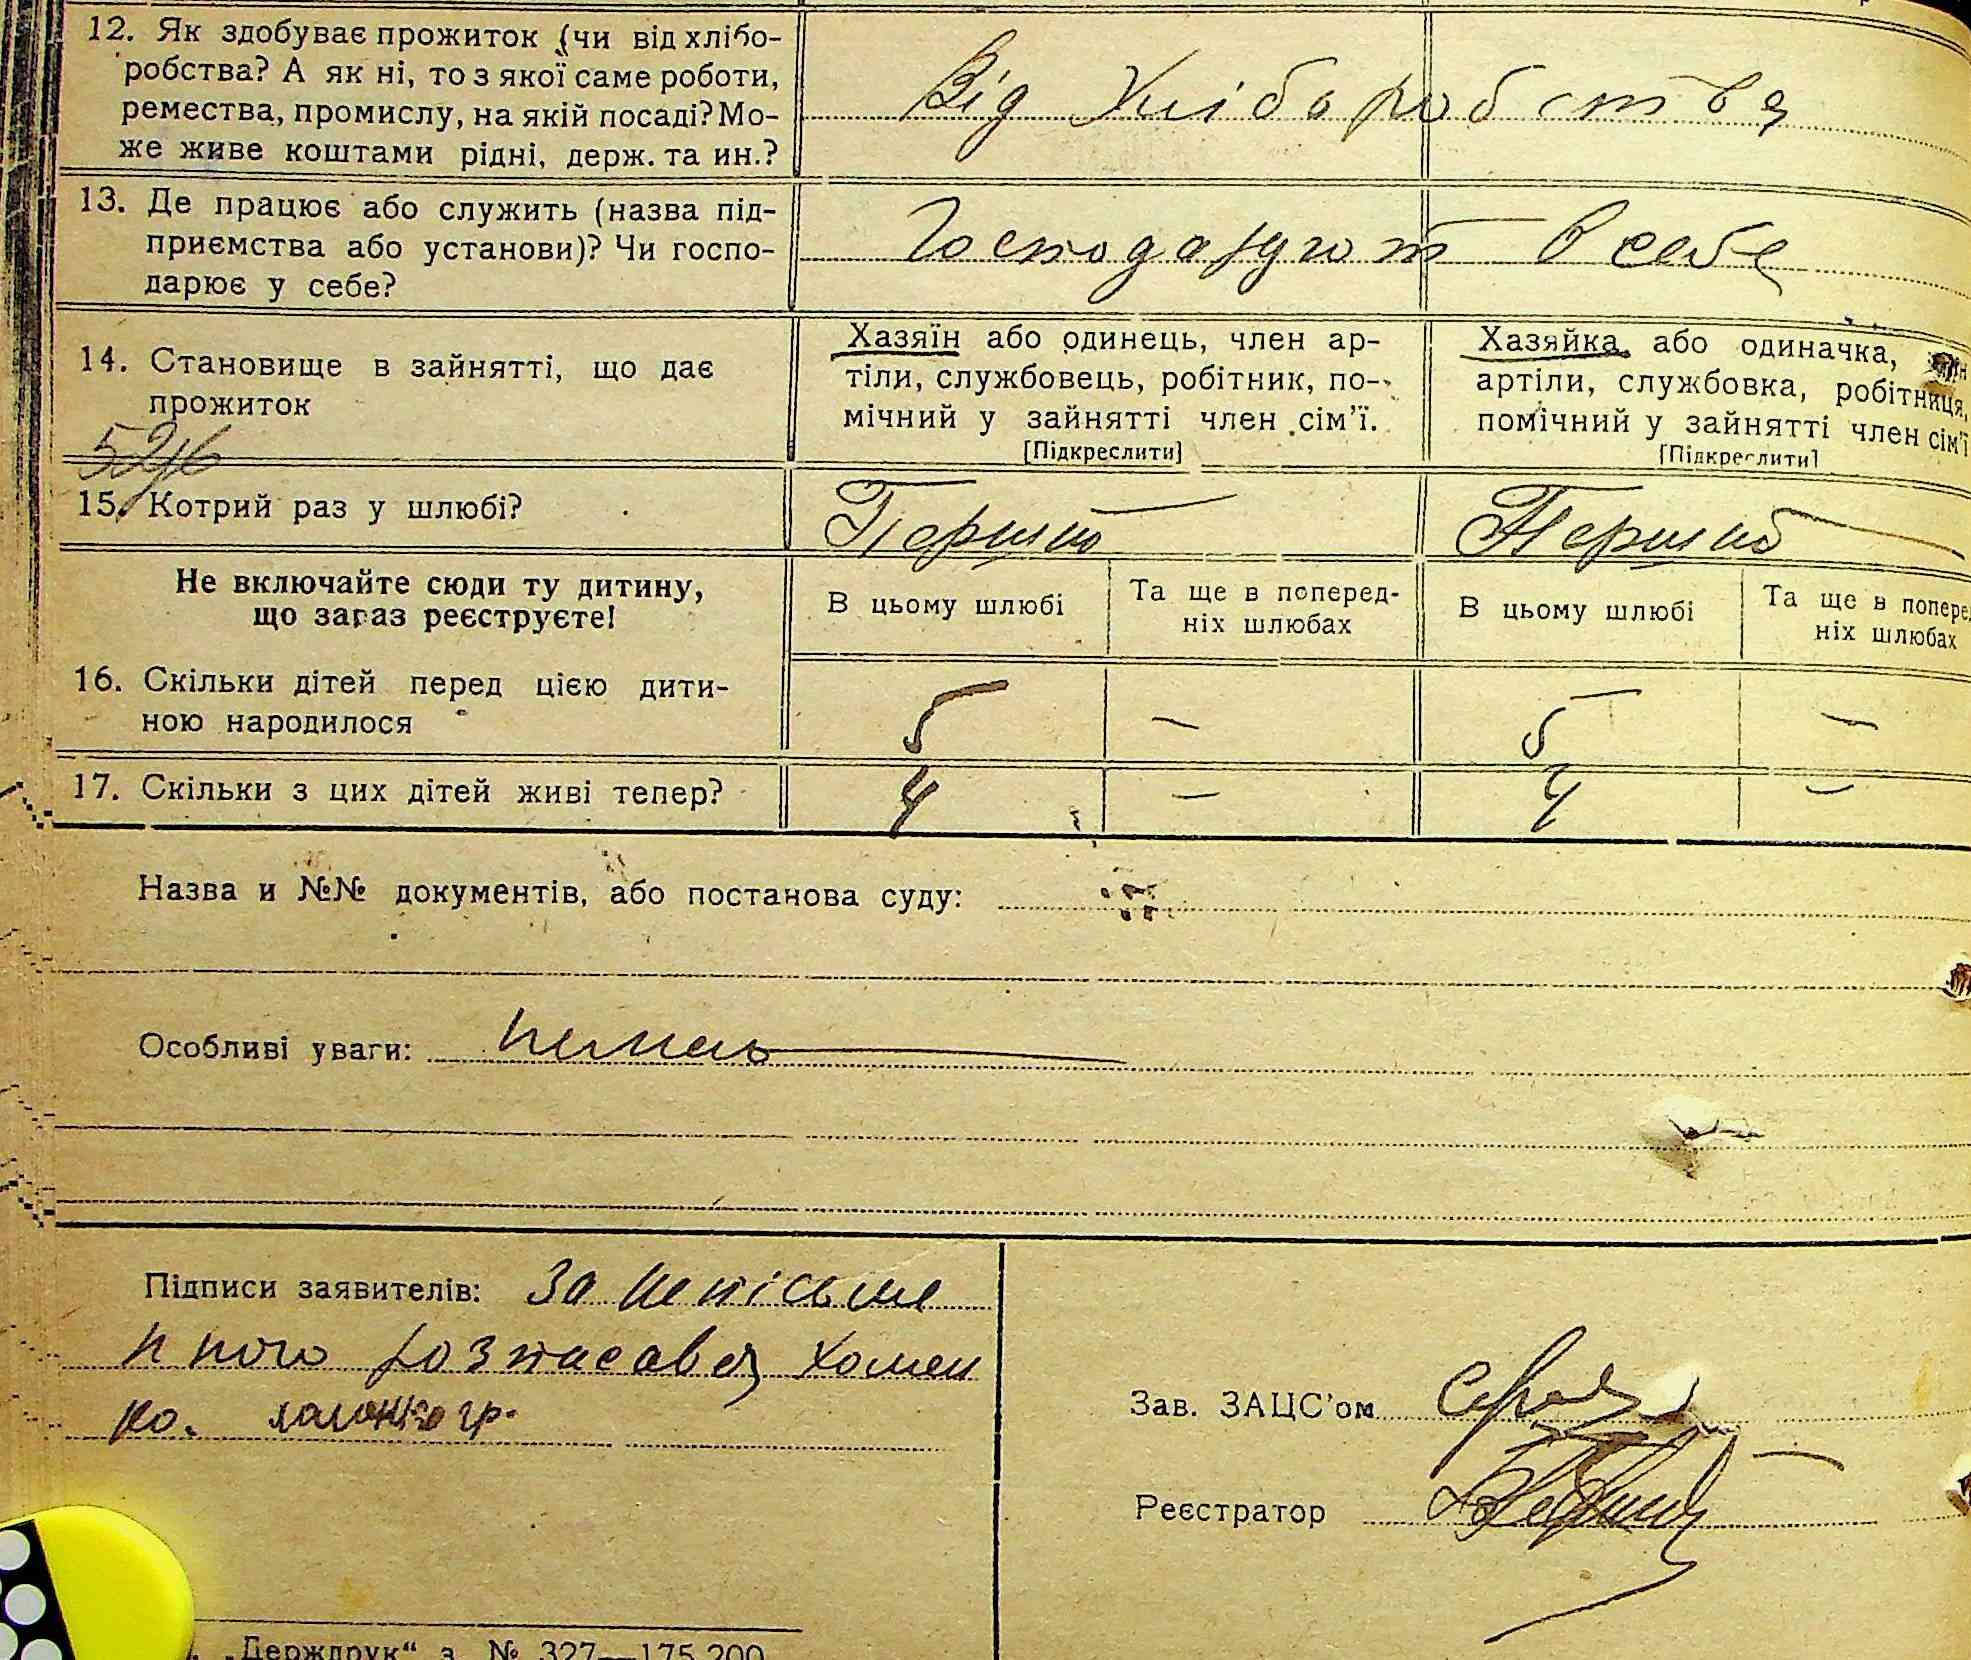 12. Як здобуває прожиток (чи від хлібо-
робства? А як ні, то з якої саме роботи,
ремества, промислу, на якій посаді? Мо-
же живе коштами рідні, держ. та ин.?
Від Хліборобства
13. Де працює або служить (назва під-
приємства або установи)? Чи госпо-
дарює у себе?
Господарують в себе
14. Становище в зайнятті, що дає
прожиток
Хазяїн або одинець, член ар-
тіли, службовець, робітник, по-
мічний у зайнятті член сім'ї.
[Підкреслити]
Хазяйка або одиначка,
артіли, службовка, робітниця,
помічний у зайнятті член сім'ї
[Підкреслити]
15. Котрий раз у шлюбі?
Перший
Перший
Не включайте сюди ту дитину,
що зараз реєструєте!
В цьому шлюбі
Та ще в поперед-
ніх шлюбах
В цьому шлюбі
Та ще в попере
ніх шлюбах
16. Скільки дітей перед цією дити-
ною народилося
5 — 5 —
17. Скільки з цих дітей живі тепер?
4 — 4 —
Назва и №№ документів, або постанова суду:
Особливі уваги: немає
Підписи заявителів: За непісьме
нного розписався Хомен
ко.
Зав. ЗАЦС'ом
Реєстратор
„Держдрук“ з. № 327—175.200